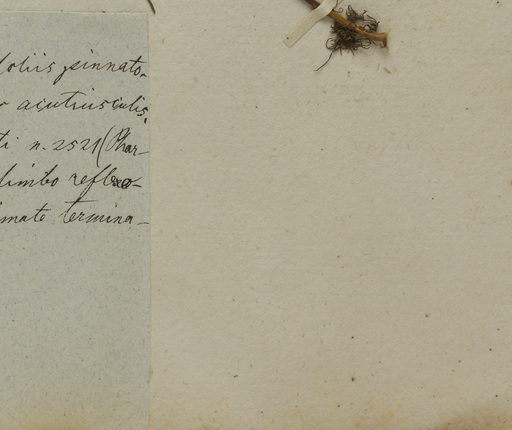 foliis pinnato-
acutiusculis.
n. 2521 (Phar-
limbo reflexo-
termina-